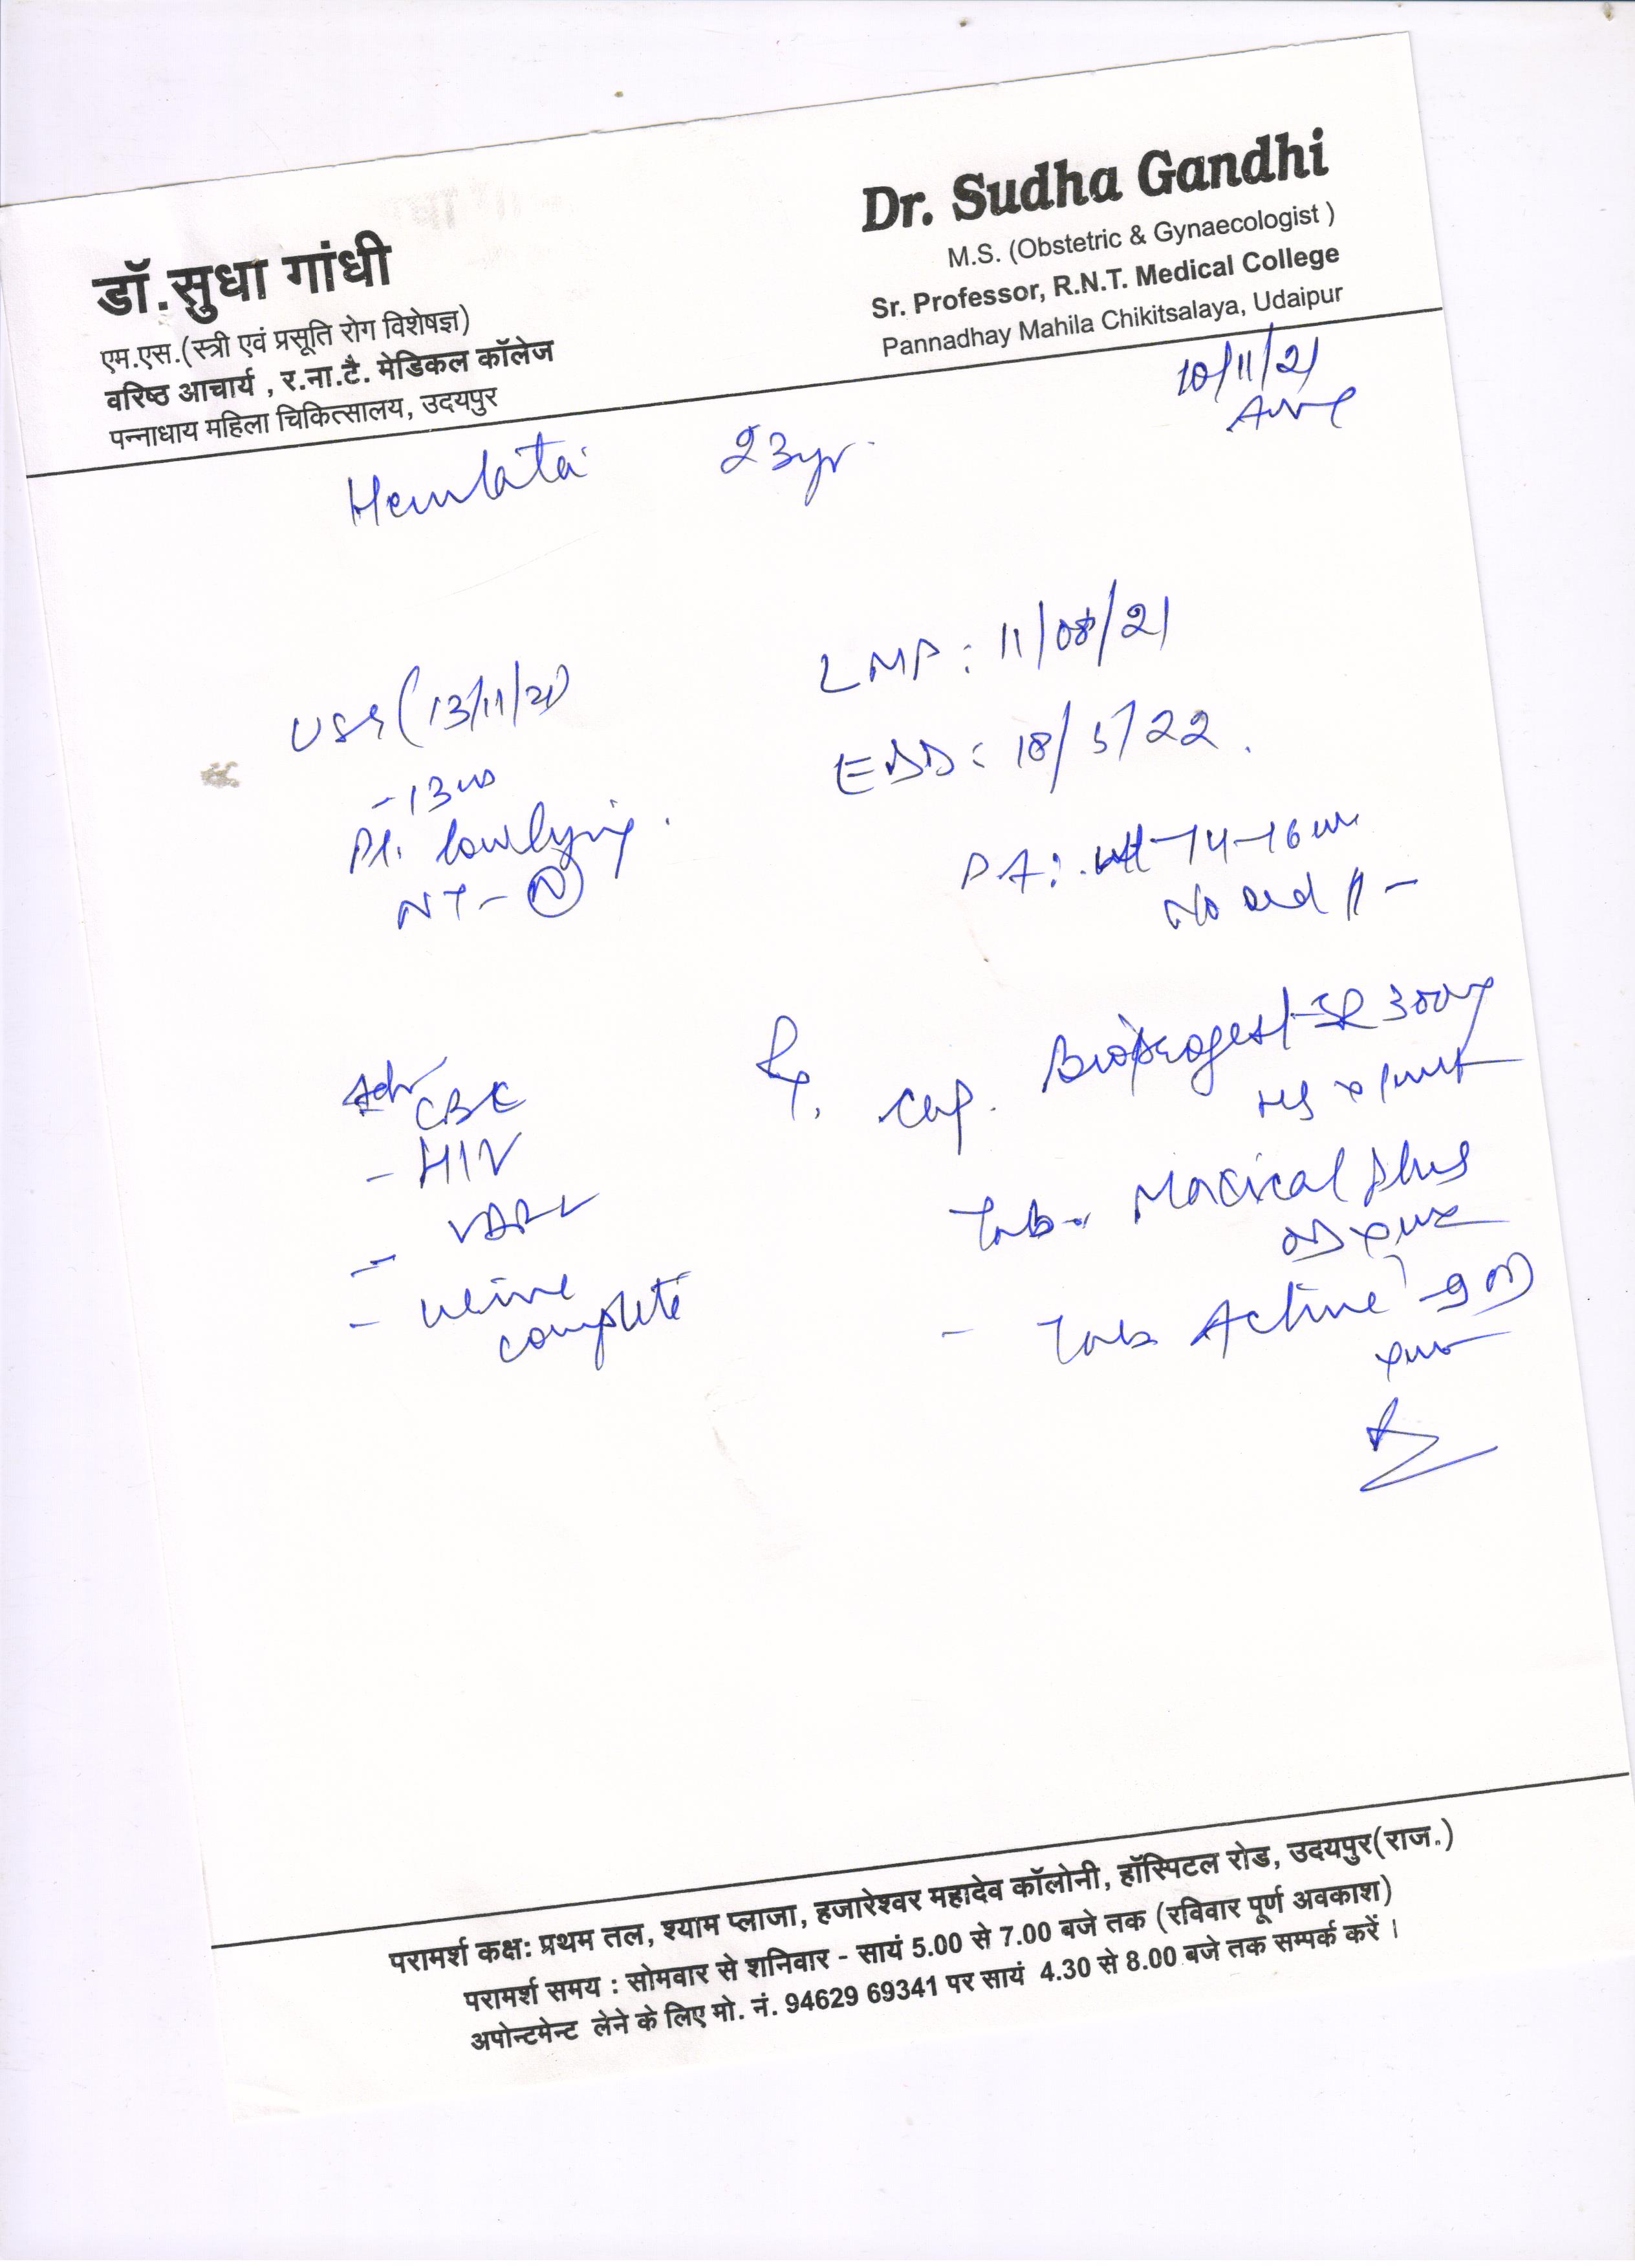 डॉ.सुधा गांधी
एम.एस.(स्त्री एवं प्रसूति रोग विशेषज्ञ)
वरिष्ठ आचार्य , र.ना.टै. मेडिकल कॉलेज
पन्नाधाय महिला चिकित्सालय, उदयपुर
Dr. Sudha Gandhi
M.S. (Obstetric & Gynaecologist )
Sr. Professor, R.N.T. Medical College
Pannadhay Mahila Chikitsalaya, Udaipur
10/11/21
Hemlata 23yr.
LMP : 11/08/21
EDD : 18/5/22.
USG (13/11/21)
-13
Pl. lowlying.
NT - N
PA: 14-16
No
Adv
CBC
- HIV
- VDRL
- urine
complete
Rp. Cap. Bioprogest-SR 300mg
HS x 1
Tab. Maxical plus
OD x
- Tab Active-9 OD
परामर्श कक्ष: प्रथम तल, श्याम प्लाजा, हजारेश्वर महादेव कॉलोनी, हॉस्पिटल रोड, उदयपुर(राज.)
परामर्श समय : सोमवार से शनिवार - सायं 5.00 से 7.00 बजे तक (रविवार पूर्ण अवकाश)
अपोन्टमेन्ट लेने के लिए मो. नं. 94629 69341 पर सायं 4.30 से 8.00 बजे तक सम्पर्क करें ।